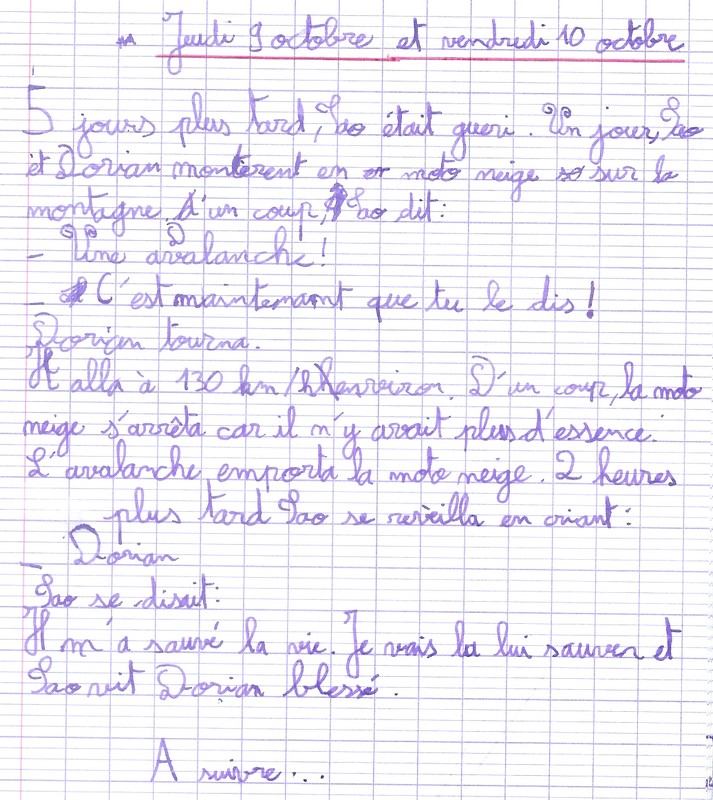 Jeudi 9 octobre et vendredi 10 octobre
5 jours plus tard, Sao était gueri. Un jour, Sao
et Dorian montèrent en moto neige sur la
montagne, d'un coup, Sao dit:
- Une avalanche!
- C'est maintenant que tu le dis!
Dorian tourna.
Il alla à 130 km/h environ. D'un coup, la moto
neige s'arrêta car il n'y avait plus d'essence.
L'avalanche emporta la moto neige. 2 heures
plus tard Sao se reveilla en criant:
- Dorian
Sao se disait:
Il m'a sauvé la vie. Je vais la lui sauver et
Sao vit Dorian blessé.
A suivre...